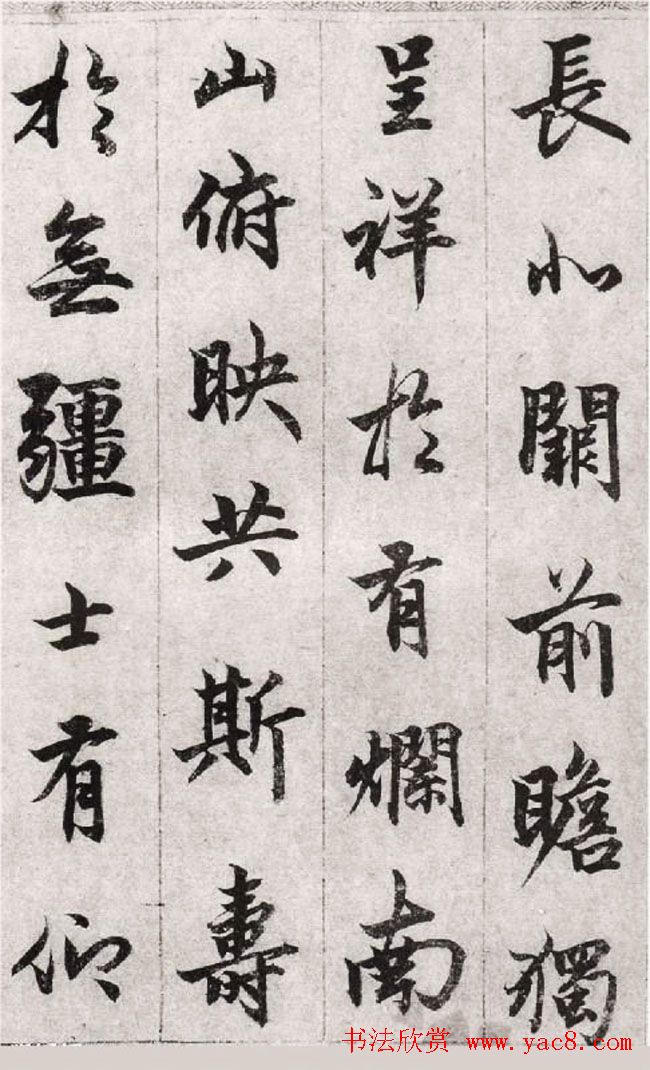 長北闕前瞻獨
呈祥於有爛南
山俯映共斯壽
於無疆士有仰
书法欣赏 www.yac8.com